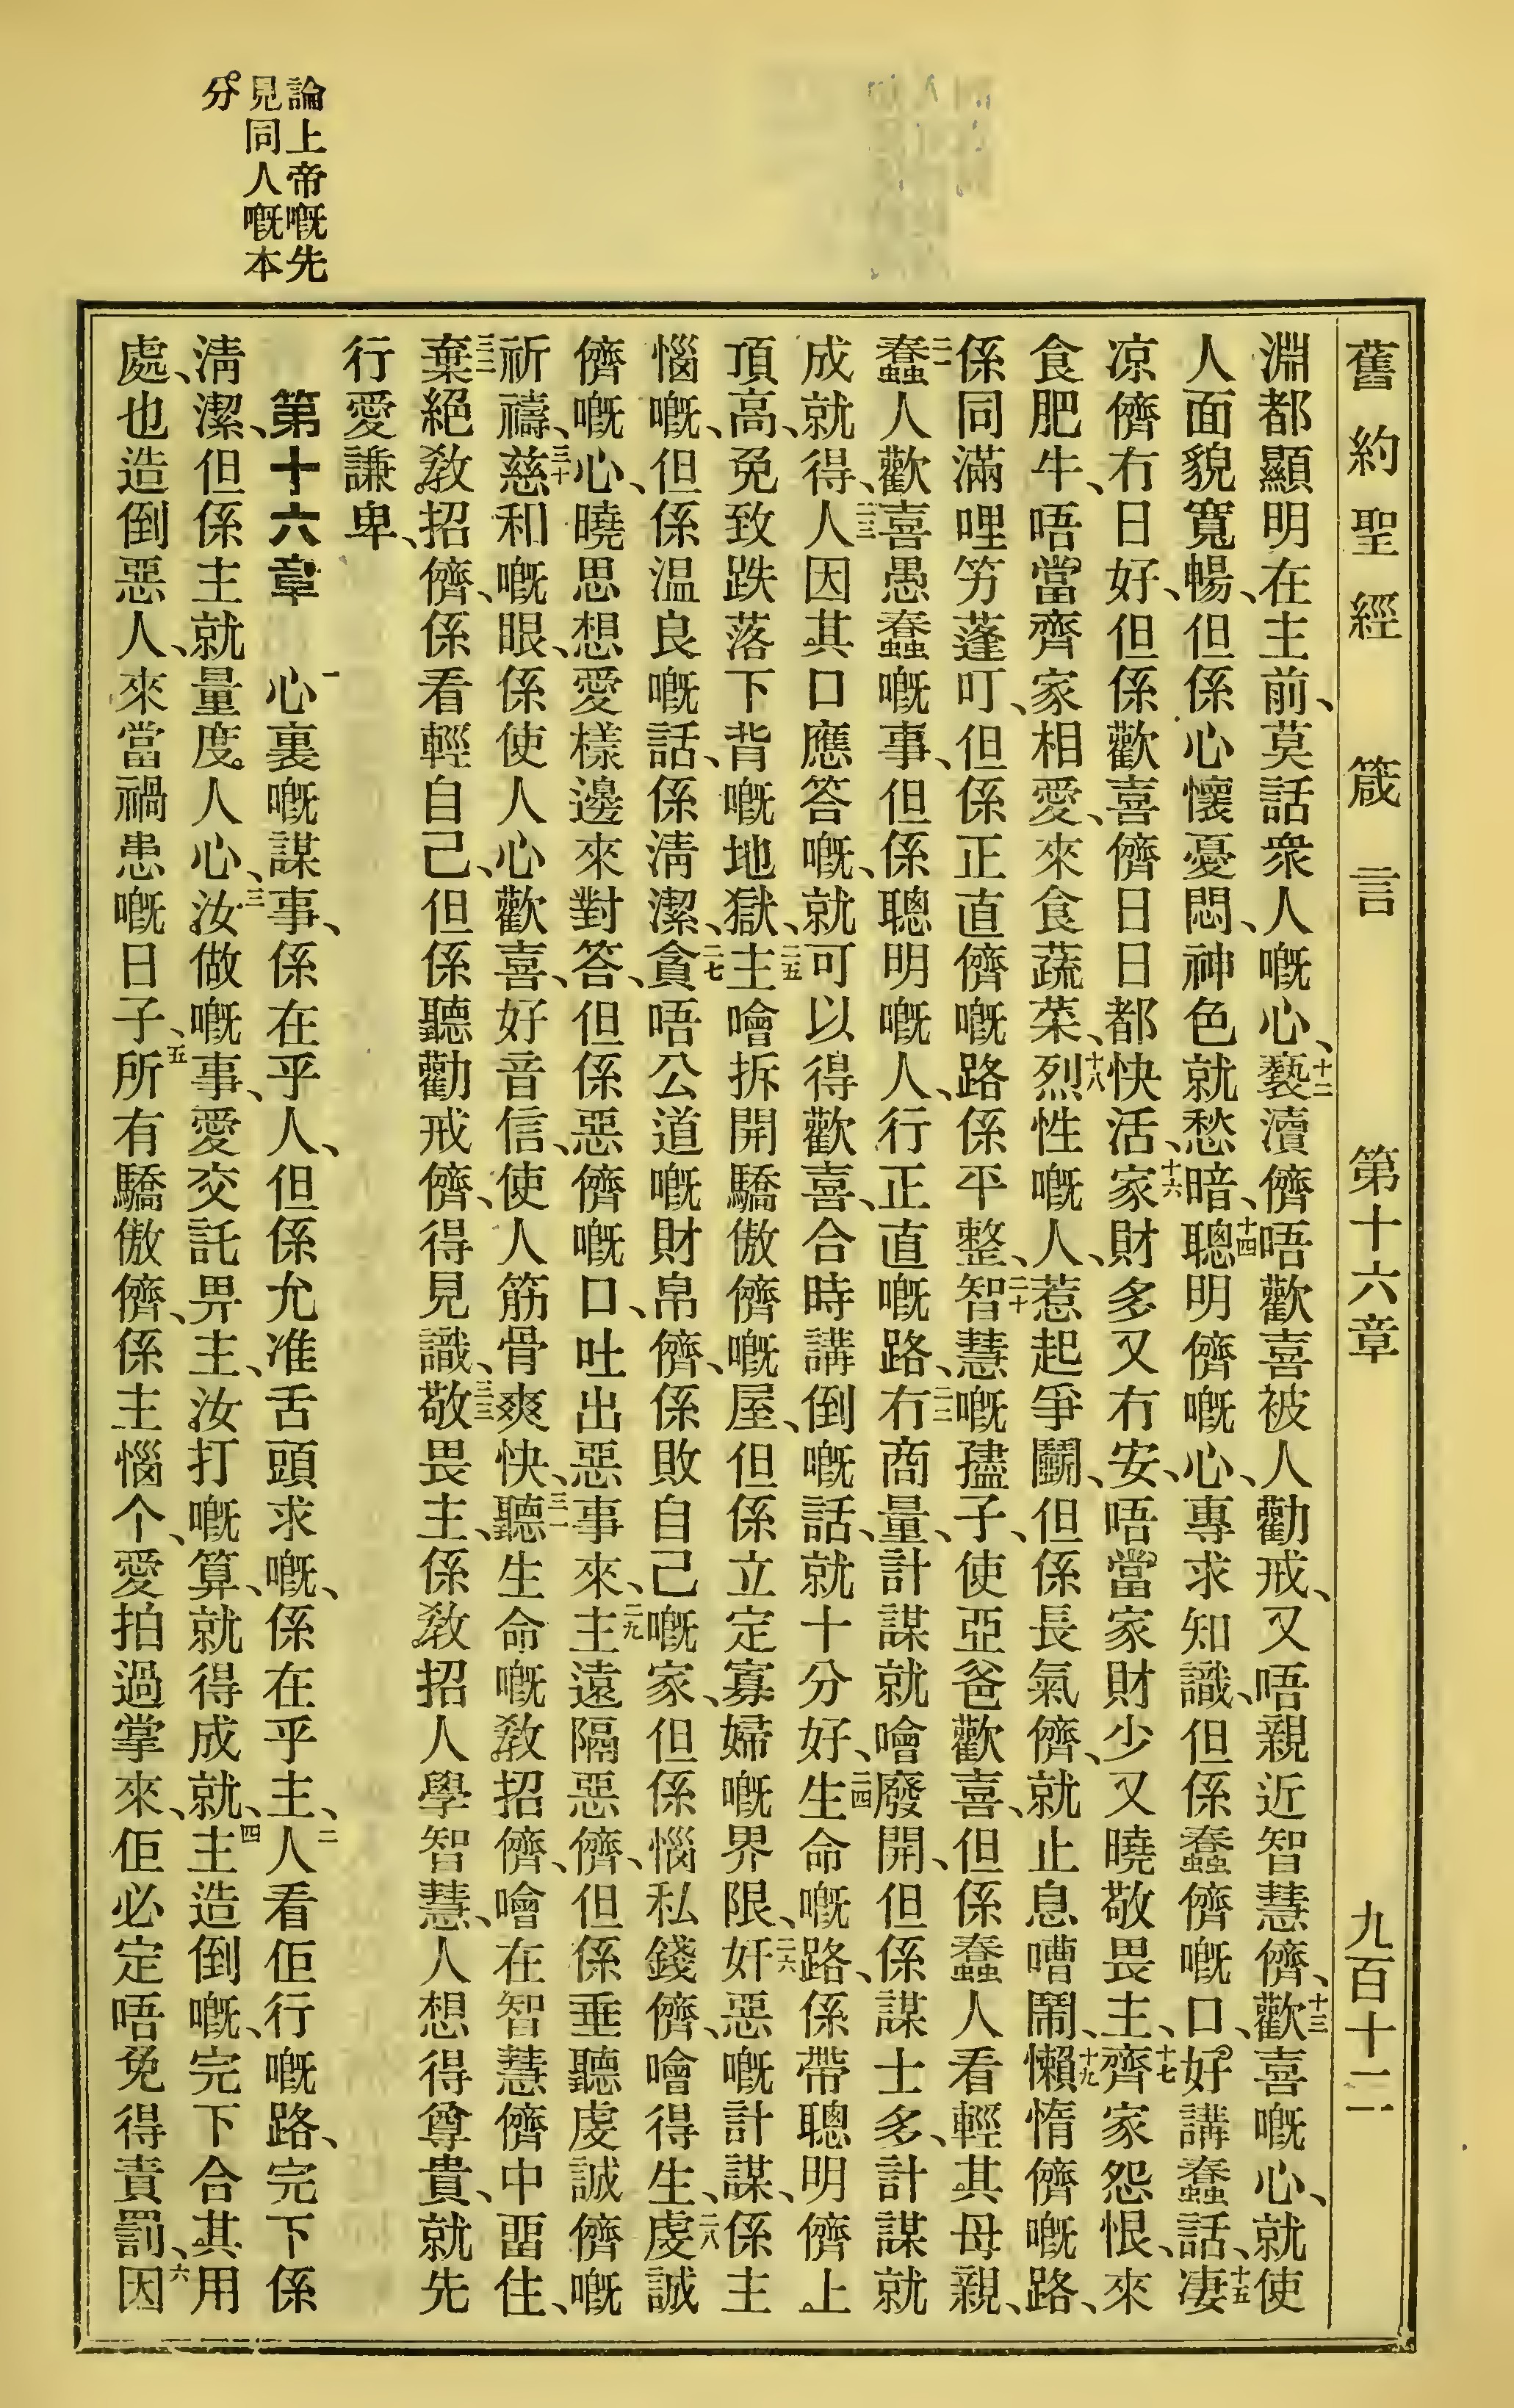 舊約聖經 箴言 第十六章 九百十二
淵都顯明在主前、莫話衆人嘅心、十二褻瀆儕唔歡喜被人勸戒、又唔親近智慧儕、十三歡喜嘅心、就使
人面貌寬暢、但係心懷憂悶、神色就愁暗、十四聰明儕嘅心、專求知識、但係蠢儕嘅口、好講蠢話、十五凄
凉儕冇日好、但係歡喜儕日日都快活、十六家財多又冇安、唔當家財少又曉敬畏主、十七齊家怨恨、來
食肥牛、唔當齊家相愛、來食蔬菜、十八烈性嘅人、惹起爭鬭、但係長氣儕、就止息嘈鬧、十九懶惰儕嘅路、
係同滿哩竻蓬叮、但係正直儕嘅路係平整、二十智慧嘅孻子、使亞爸歡喜、但係蠢人看輕其母親、
二一蠢人歡喜愚蠢嘅事、但係聰明嘅人、行正直嘅路、二二冇商量、計謀就噲廢開、但係謀士多、計謀就
成就得、二三人因其口應答嘅、就可以得歡喜、合時講倒嘅話、就十分好、二四生命嘅路、係帶聰明儕上
頂高、免致跌落下背嘅地獄、二五主噲拆開驕傲儕嘅屋、但係立定寡婦嘅界限、二六奸惡嘅計謀、係主
惱嘅、但係温良嘅話、係淸潔、二七貪唔公道嘅財帛儕、係敗自己嘅家、但係惱私錢儕、噲得生、二八虔誠
儕嘅心、曉思想愛樣邊來對答、但係惡儕嘅口、吐出惡事來、二九主遠隔惡儕、但係垂聽虔誠儕嘅
祈禱、三十慈和嘅眼、係使人心歡喜、好音信、使人筋骨爽快、三一聽生命嘅敎招儕、噲在智慧儕中畱住、
三二棄絕敎招儕、係看輕自己、但係聽勸戒儕、得見識、三三敬畏主、係敎招人學智慧、人想得尊貴、就先
行愛謙卑、
論上帝嘅先
見同人嘅本
分
第十六章 一心裏嘅謀事、係在乎人、但係允准舌頭求嘅、係在乎主、二人看佢行嘅路、完下係
淸潔、但係主就量度人心、三汝做嘅事、愛交託畀主、汝打嘅算、就得成就、四主造倒嘅、完下合其用
處、也造倒惡人、來當禍患嘅日子、五所有驕傲儕、係主惱个、愛拍過掌來、佢必定唔免得責罰、六因